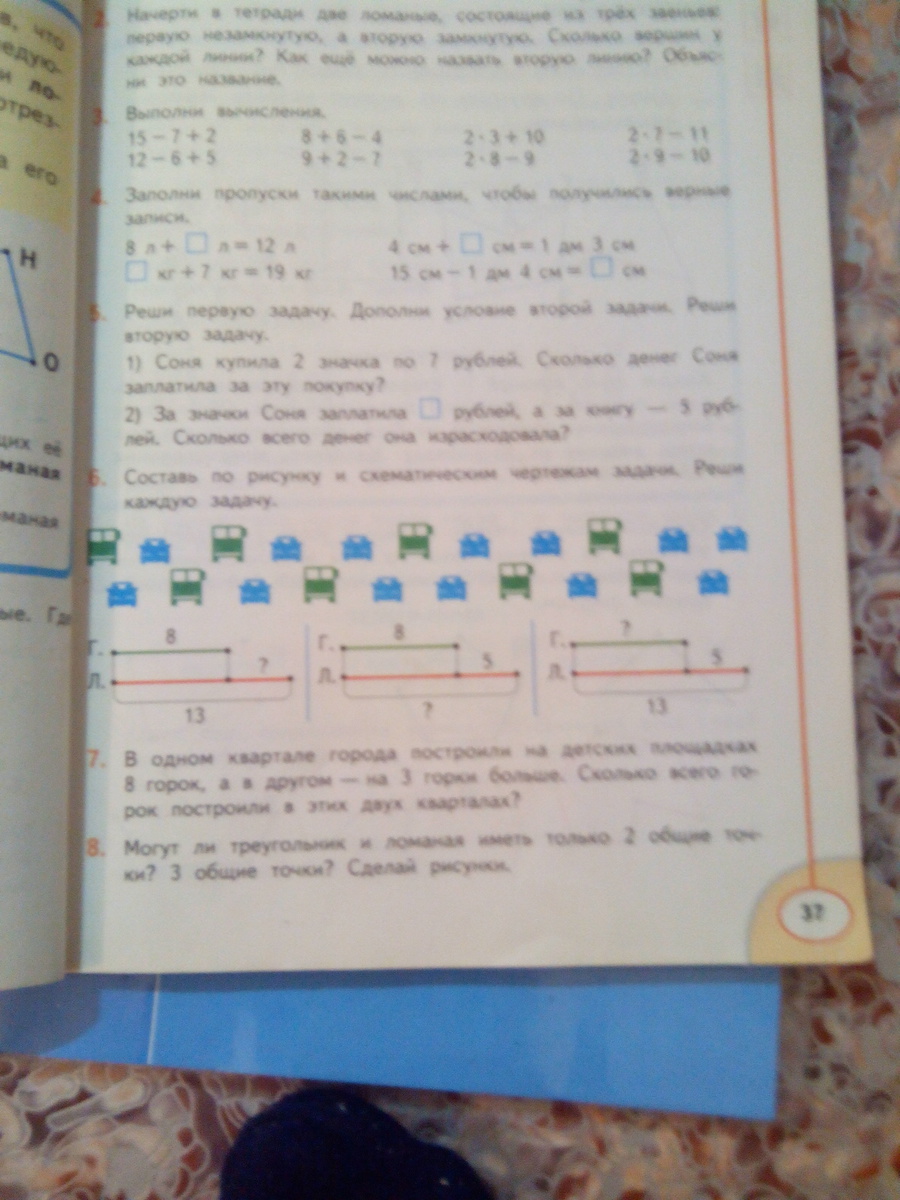 в, что
едую-
и ло-
отрез-
а его
Н
О
щих её
маная
маная
ые. Где
2. Начерти в тетради две ломаные, состоящие из трёх звеньев:
первую незамкнутую, а вторую замкнутую. Сколько вершин у
каждой линии? Как ещё можно назвать вторую линию? Объяс-
ни это название.
3. Выполни вычисления.
15 − 7 + 2 8 + 6 − 4 2 · 3 + 10 2 · 7 − 11
12 − 6 + 5 9 + 2 − 7 2 · 8 − 9 2 · 9 − 10
4. Заполни пропуски такими числами, чтобы получились верные
записи.
8 л + □ л = 12 л 4 см + □ см = 1 дм 3 см
□ кг + 7 кг = 19 кг 15 см − 1 дм 4 см = □ см
5. Реши первую задачу. Дополни условие второй задачи. Реши
вторую задачу.
1) Соня купила 2 значка по 7 рублей. Сколько денег Соня
заплатила за эту покупку?
2) За значки Соня заплатила □ рублей, а за книгу — 5 руб-
лей. Сколько всего денег она израсходовала?
6. Составь по рисунку и схематическим чертежам задачи. Реши
каждую задачу.
Г. 8
Л. ?
13
Г. 8
Л. 5
?
Г. ?
Л. 5
13
7. В одном квартале города построили на детских площадках
8 горок, а в другом — на 3 горки больше. Сколько всего го-
рок построили в этих двух кварталах?
8. Могут ли треугольник и ломаная иметь только 2 общие точ-
ки? 3 общие точки? Сделай рисунки.
37